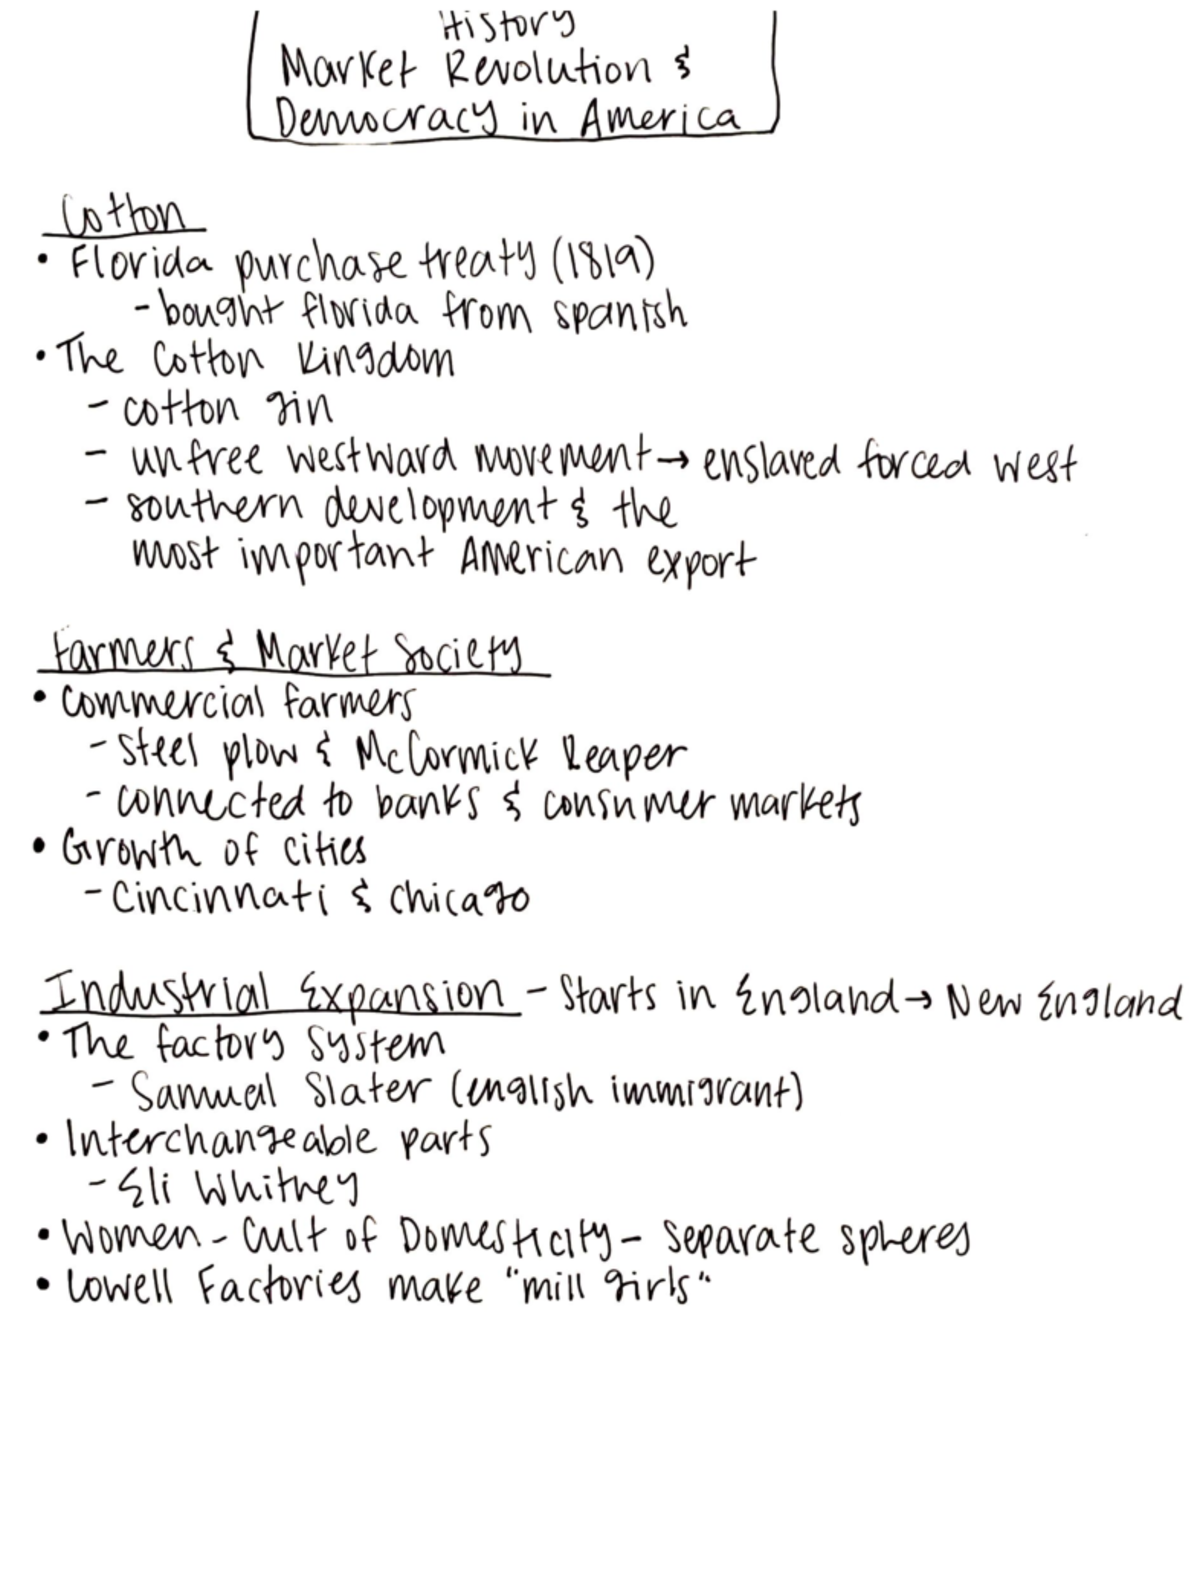 History
Market Revolution &
Democracy in America
Cotton
• Florida purchase treaty (1819)
- bought florida from spanish
• The Cotton Kingdom
- cotton gin
- unfree westward movement → enslaved forced west
- southern development & the
most important American export
Farmers & Market Society
• Commercial farmers
- Steel plow & McCormick Reaper
- connected to banks & consumer markets
• Growth of cities
- Cincinnati & Chicago
Industrial Expansion - Starts in England → New England
• The factory System
- Samual Slater (english immigrant)
• Interchangeable parts
- Eli Whitney
• Women - Cult of Domesticity - Separate spheres
• Lowell Factories make "mill girls"